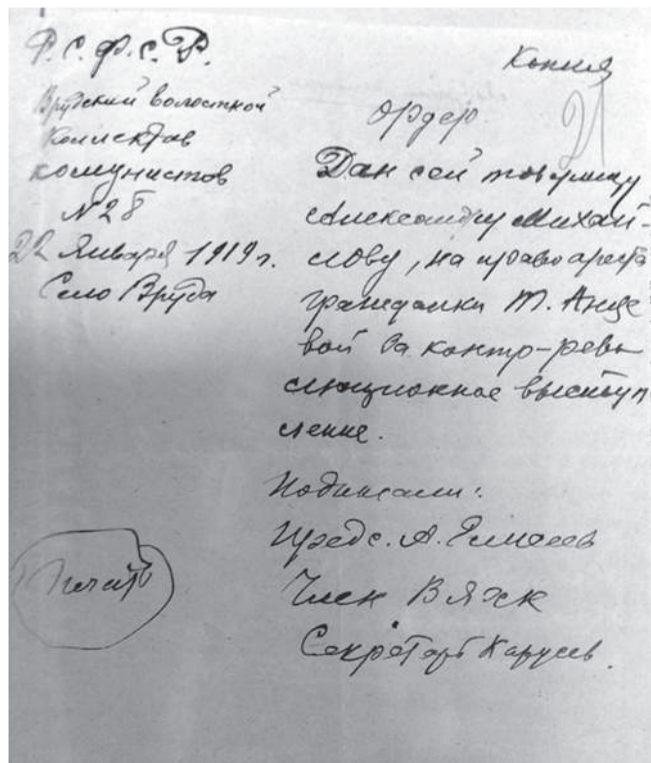 Р.С.Ф.С.Р.
Врудский волосткой
Коллектив
комунистов
№ 28
22 Января 1919 г.
Село Вруда
Копия
21
Ордер
Дан сей товарищу
Александру Михай-
лову, на право ареста
гражданки Т. Анце
вой за контр-рево
люционное выступ
ление.
Подписали:
Предс. А.
Член Вяжк
Секретарь Карусев.
Печать